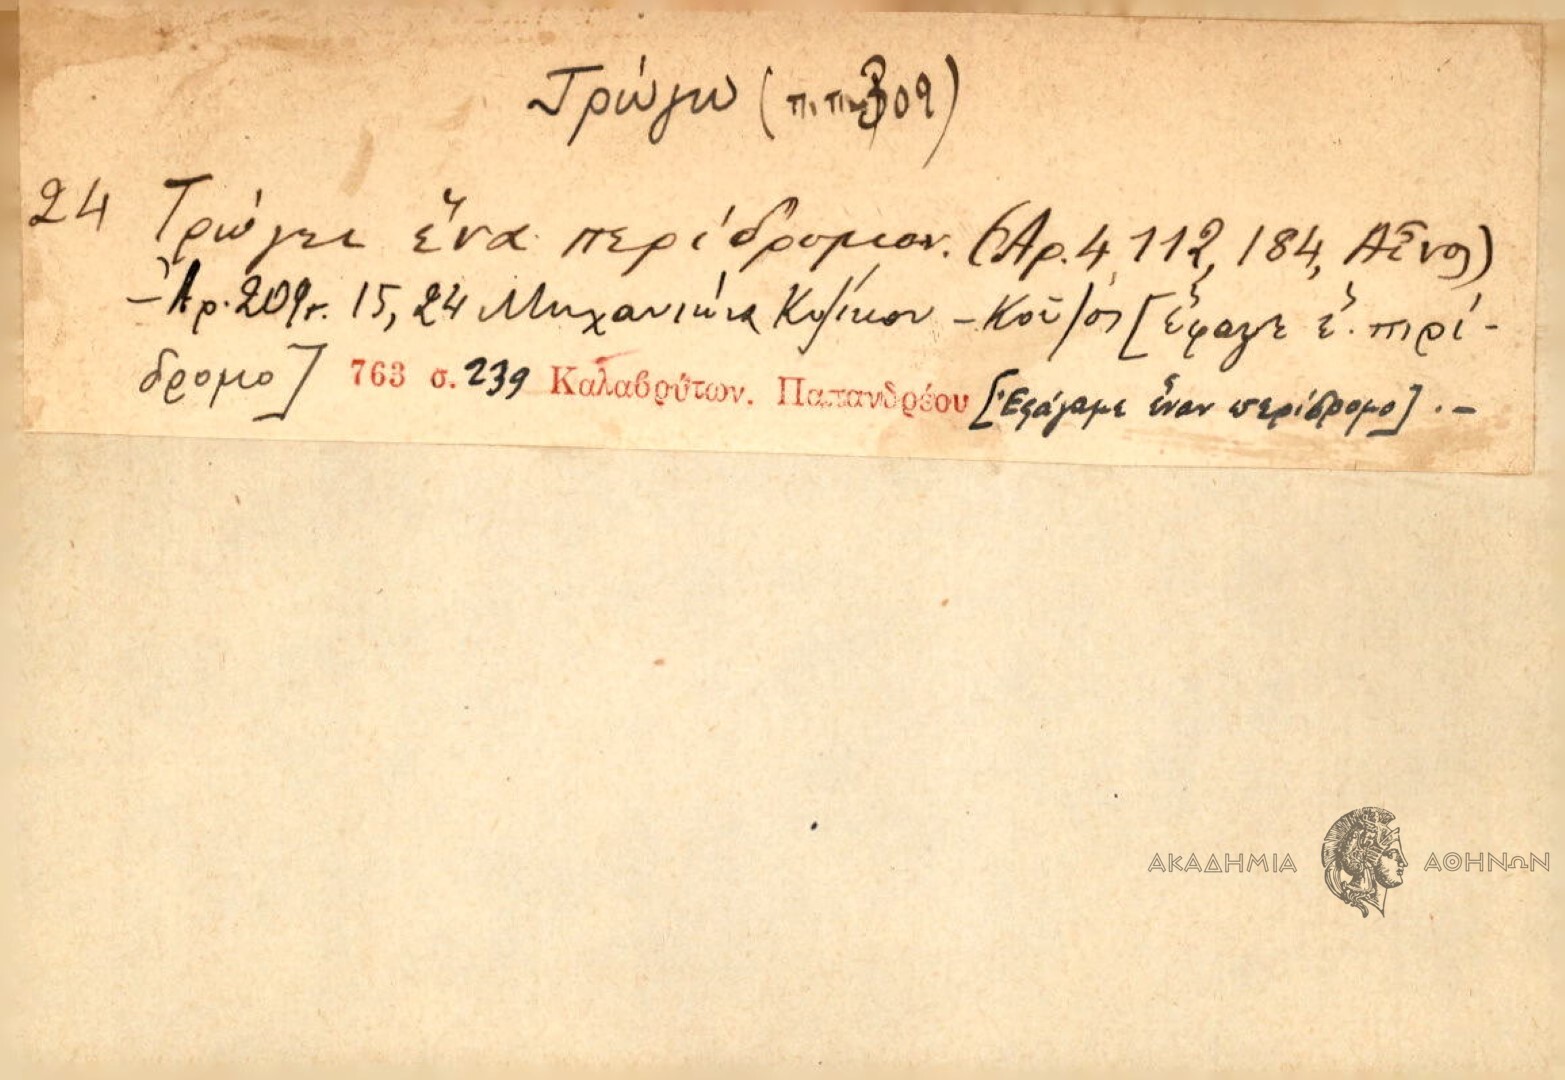 Τρώγω (π.π. 309)
24 Τρώγει ἕνα περίδρομον. (Ἀρ. 4, 112, 184, Αἶνος)
- Ἀρ. 209 15, 24 Μηχανιώνα Κυζίκου - [ἔφαγε ἕ. περί-
δρομο] 763 σ. 239 Καλαβρύτων. Παπανδρέου [Ἐφάγαμε ἕναν περίδρομο] . -
ΑΚΑΔΗΜΙΑ ΑΘΗΝΩΝ